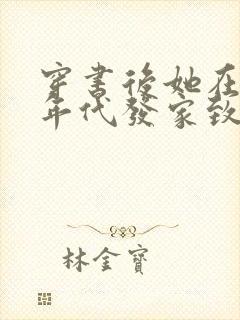 穿書後她在
年代發家致
林金寶